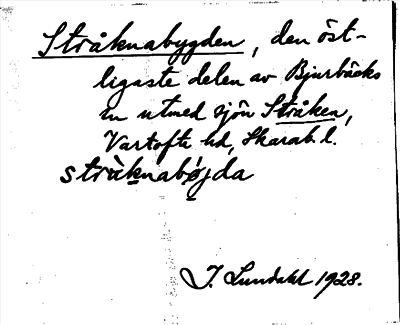 Stråknabygden, den öst-
ligaste delen av Bjurbäcks
sn utmed sjön Stråken,
Vartofte hd, Skarab. l.
stråknabøjda
J. Lundahl 1928.